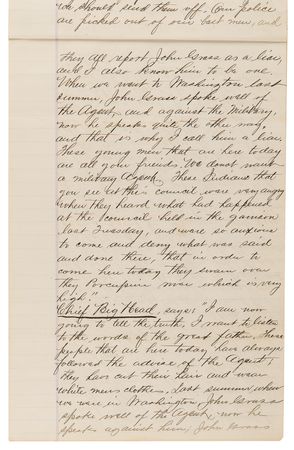 we should send them off. Our police
are picked out of our best men, and
they all report John Grass as a liar,
and I also know him to be one.
When we went to Washington last
summer, John Grass spoke well of
the Agent, and against the Military,
now he speaks the other way,
and that is why I call him a liar.
These young men that are here today
are all your friends. We do not want
a military Agent. These Indians that
you see at this council were very angry
when they heard what had happened
at the Council held in the garrison
last Tuesday, and were so anxious
to come and deny what was said
and done there, that in order to
come here today they swam over
the Porcupine river which is very
high."
Chief Big Head, says: "I am now
going to tell the truth, I want to listen
to the words of the great father. These
people that are here today have always
followed the advice of the Agent,
they have cut their hair and wear
white men's clothes. Last summer when
we were in Washington, John Grass
spoke well of the Agent, now he
speaks against him, John Grass